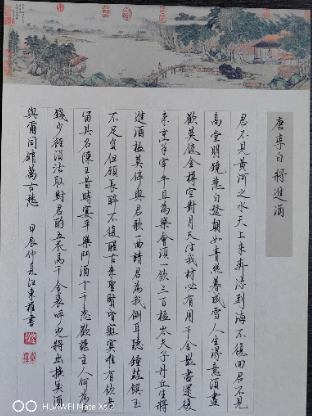 唐李白将進酒
君不見黄河之水天上来奔流到海不復回君不見
高堂明鏡悲白髮朝如青絲暮成雪人生得意須盡
歡莫使金樽空對月天生我材必有用千金散盡還復
来烹羊宰牛且為樂會須一飲三百杯岑夫子丹丘生將
進酒杯莫停與君歌一曲請君為我倾耳聽鐘鼓饌玉
不足貴但願長醉不復醒古来聖賢皆寂寞惟有飲者
留其名陳王昔時宴平樂斗酒十千恣歡謔主人何為言
錢少徑須沽取對君酌五花馬千金裘呼兒將出換美酒
與爾同銷萬古愁
甲辰仲夏江東 書
HUAWEI Mate